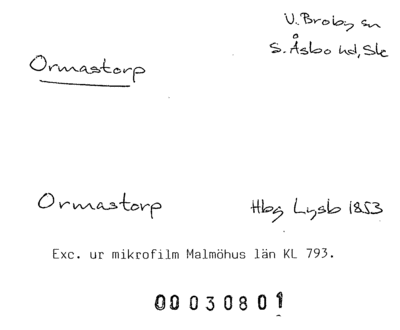 V. Broby sn
S. Åsbo hd, Sk
Ormastorp
Ormastorp
Hbg Lysb 1853
Exc. ur mikrofilm Malmöhus län KL 793.
00030801